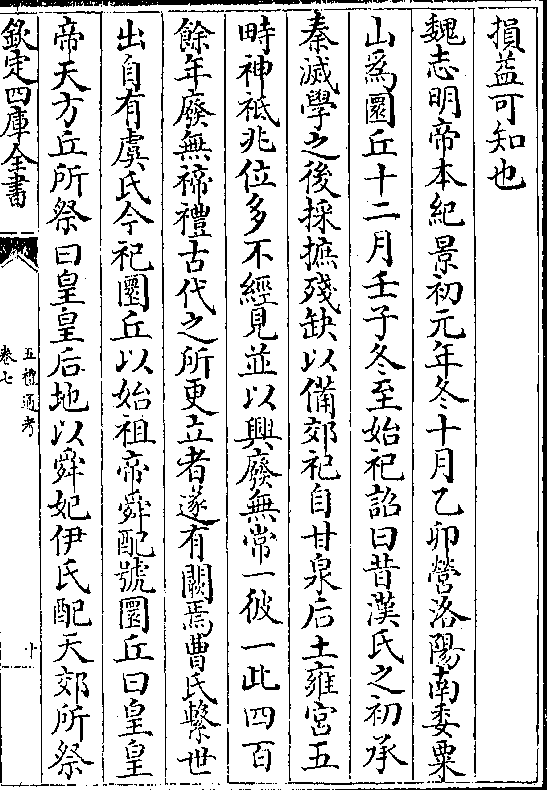 損益可知也
魏志明帝本紀景初元年冬十月乙卯營洛陽南委粟
山爲圜丘十二月壬子冬至始祀詔曰昔漢氏之初承
秦滅學之後採摭殘缺以備郊祀自甘泉后土雍宮五
畤神祗兆位多不經見並以興廢無常一彼一此四百
餘年廢無禘禮古代之所更立者遂有闕焉曹氏繫世
出自有虞氏今祀圜丘以始祖帝舜配號圜丘曰皇皇
帝天方丘所祭曰皇皇后地以舜妃伊氏配天郊所祭
欽定四庫全書
五禮通考
卷七
十